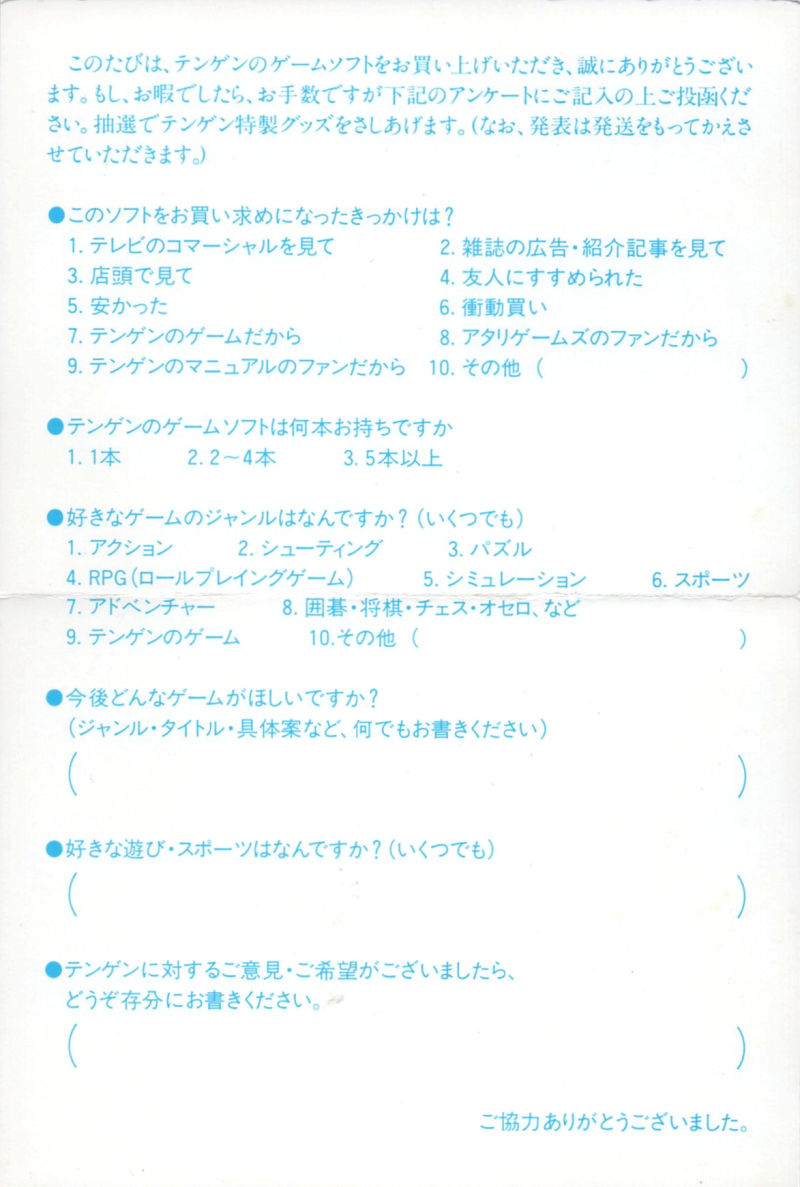 このたびは、テンゲンのゲームソフトをお買い上げいただき、誠にありがとうござい
ます。もし、お暇でしたら、お手数ですが下記のアンケートにご記入の上ご投函くだ
さい。抽選でテンゲン特製グッズをさしあげます。(なお、発表は発送をもってかえさ
せていただきます。)
●このソフトをお買い求めになったきっかけは?
1. テレビのコマーシャルを見て 2. 雑誌の広告・紹介記事を見て
3. 店頭で見て 4. 友人にすすめられた
5. 安かった 6. 衝動買い
7. テンゲンのゲームだから 8. アタリゲームズのファンだから
9. テンゲンのマニュアルのファンだから 10. その他 ( )
●テンゲンのゲームソフトは何本お持ちですか
1. 1本 2. 2〜4本 3. 5本以上
●好きなゲームのジャンルはなんですか?(いくつでも)
1. アクション 2. シューティング 3. パズル
4. RPG(ロールプレイングゲーム) 5. シミュレーション 6. スポーツ
7. アドベンチャー 8. 囲碁・将棋・チェス・オセロ、など
9. テンゲンのゲーム 10.その他 ( )
●今後どんなゲームがほしいですか?
(ジャンル・タイトル・具体案など、何でもお書きください)
( )
●好きな遊び・スポーツはなんですか?(いくつでも)
( )
●テンゲンに対するご意見・ご希望がございましたら、
どうぞ存分にお書きください。
( )
ご協力ありがとうございました。